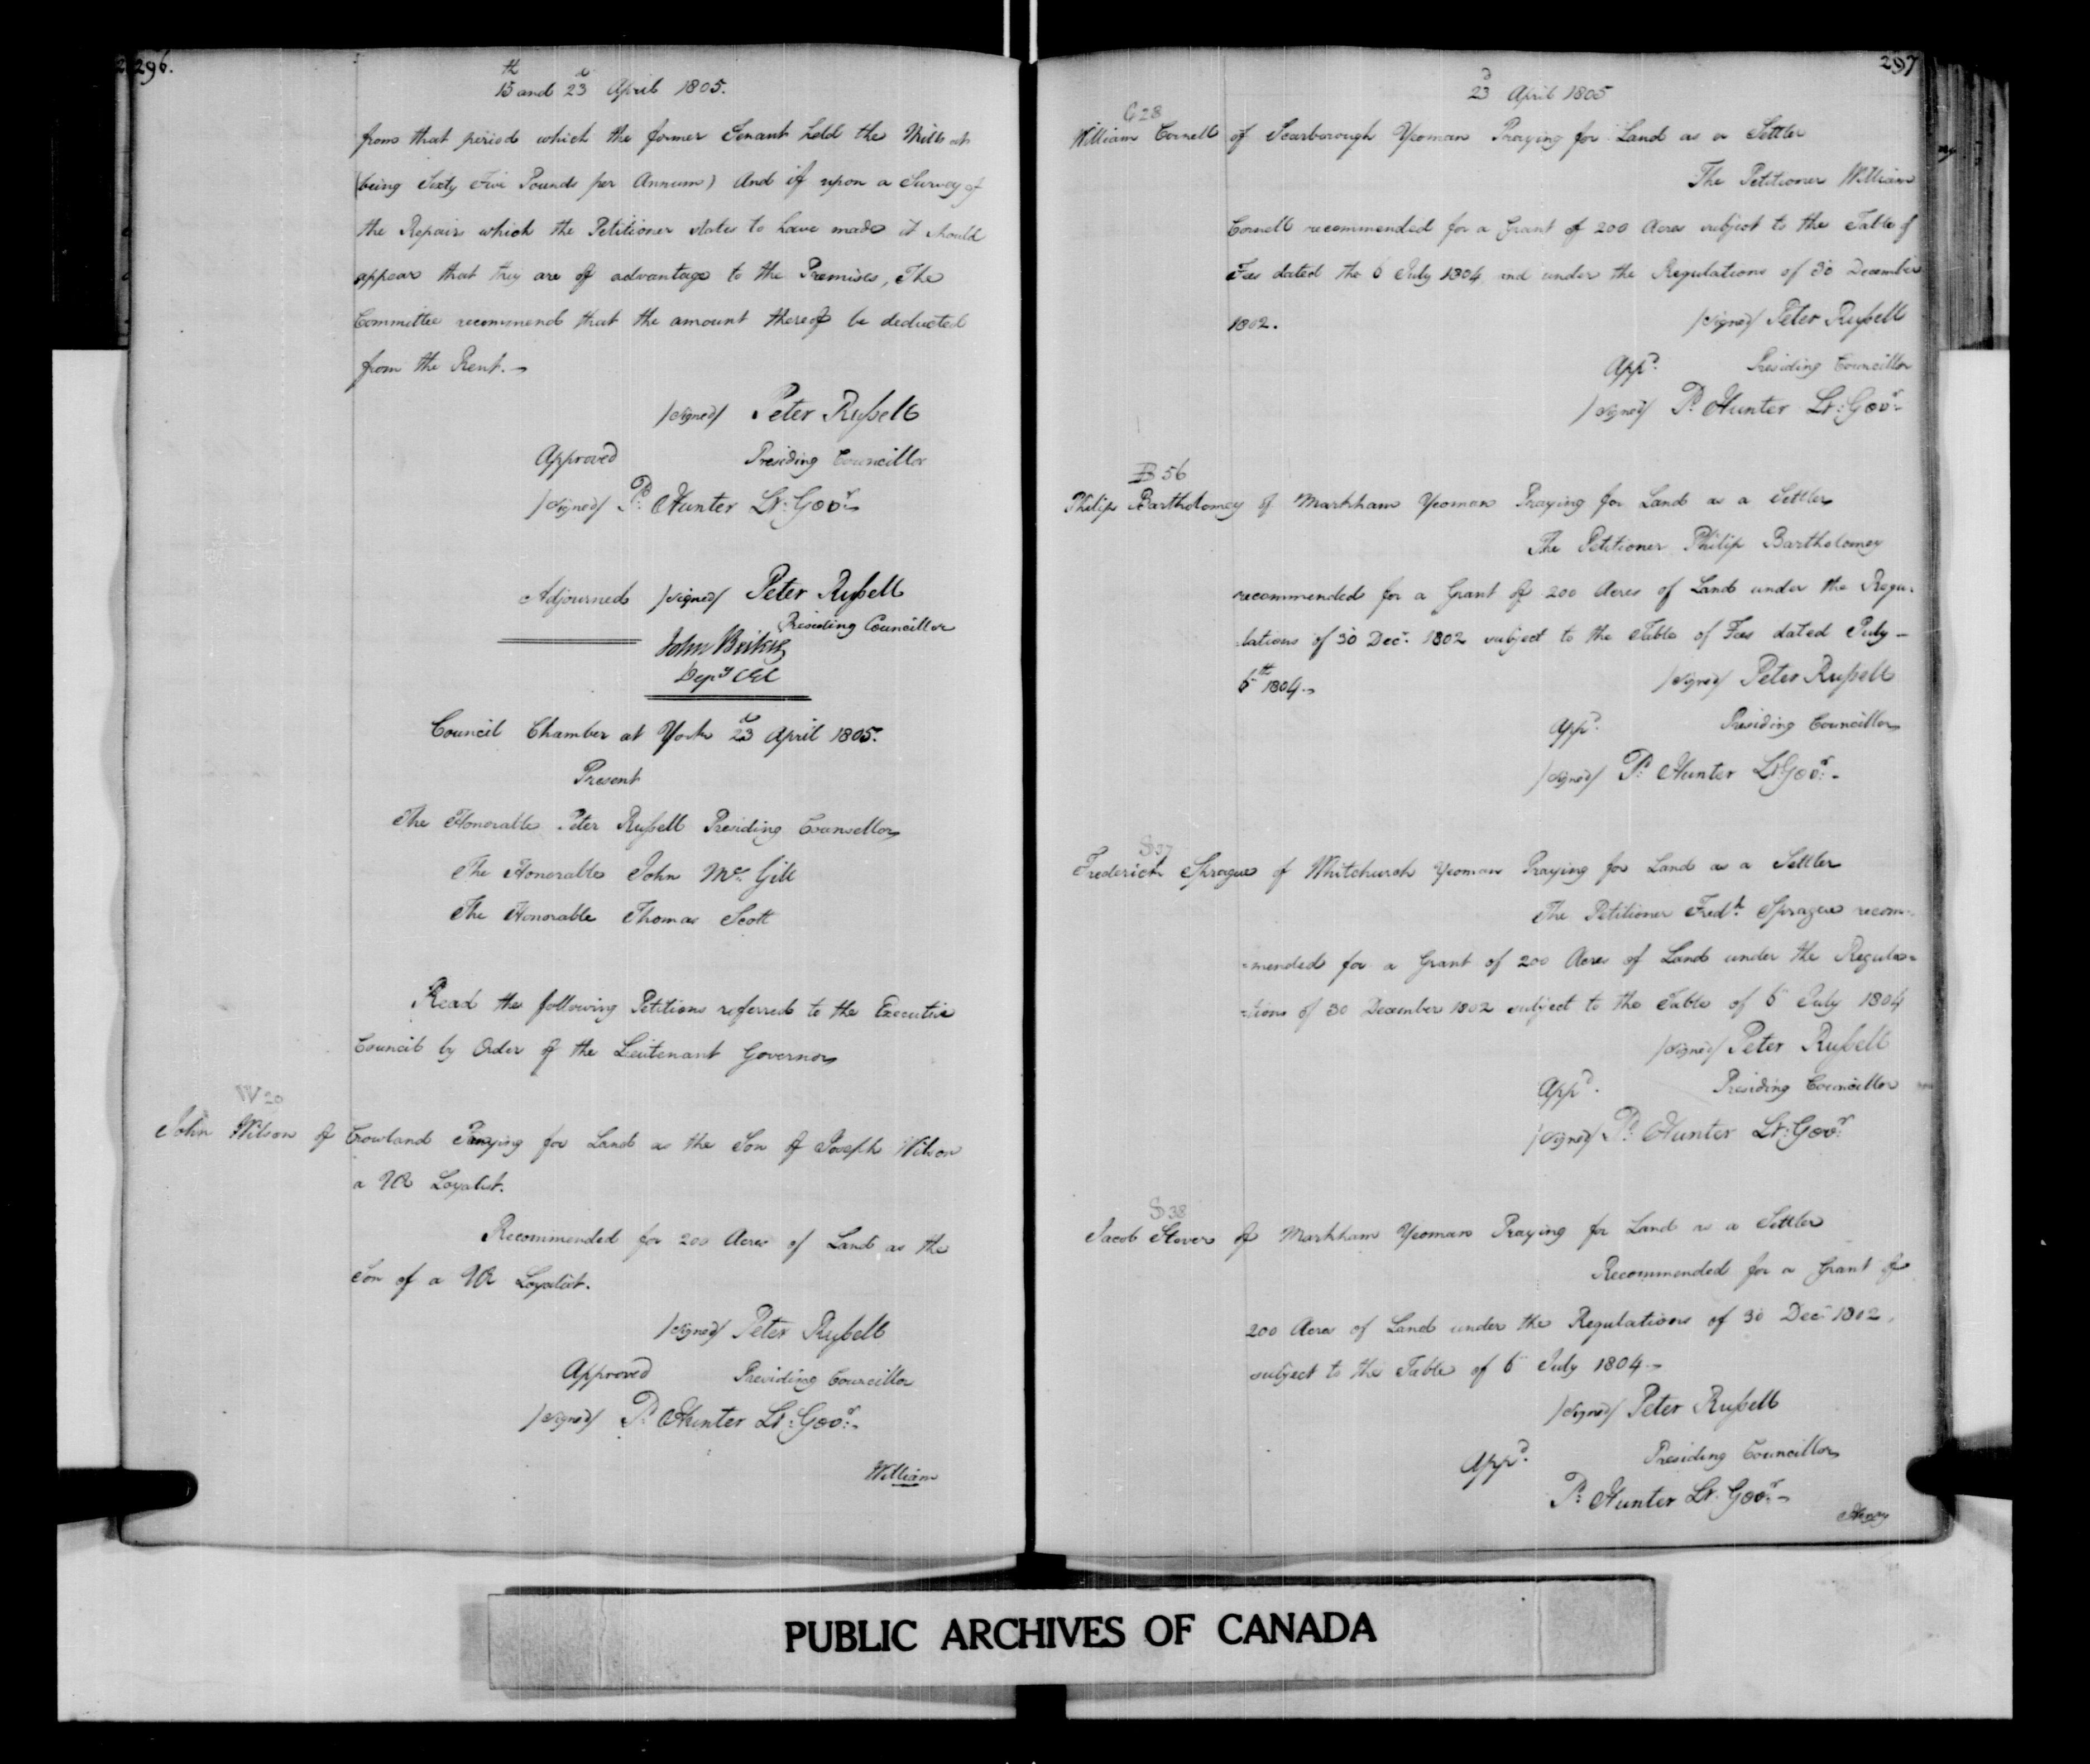 296.
15th and 23d April 1805.
from that period which the former Tenant held the Mills at
(being Sixty Five Pounds per Annum) And if upon a Survey of
the Repairs which the Petitioner states to have made it should
appear that they are of advantage to the Premises, The
Committee recommend that the amount thereof be deducted
from the Rent.
/signed/ Peter Russell
Approved Presiding Councillor
/signed/ P: Hunter Lt: Govr.
Adjourned /signed/ Peter Russell
Presiding Councillor
John Beikie
Depy CEC
Council Chamber at York 23d April 1805.
Present
The Honorable Peter Russell Presiding Councellor
The Honorable John Mc. Gill
The Honorable Thomas Scott
Read the following Petitions referred to the Executive
Council by Order of the Lieutenant Governor
W 20
John Wilson of Crowland Praying for Land as the Son of Joseph Wilson
a UE Loyalist.
Recommended for 200 Acres of Land as the
Son of a UE Loyalist.
/signed/ Peter Russell
Approved Presiding Councillor
/signed/ P: Hunter Lt: Govr.
William
297
23d April 1805
C 28
William Cornell of Scarborough Yeoman Praying for Land as a Settler
The Petitioner William
Cornell recommended for a Grant of 200 Acres subject to the Table of
Fees dated the 6 July 1804 and under the Regulations of 30 December
1802. /signed/ Peter Russell
Appd. Presiding Councillor
/signed/ P: Hunter Lt: Govr.
B 56
Philip Bartholomey of Markham Yeoman Praying for Land as a Settler
The Petitioner Philip Bartholomey
recommended for a Grant of 200 Acres of Land under the Regu-
lations of 30 Decr. 1802 subject to the Table of Fees dated July -
6th 1804. /signed/ Peter Russell
Appd. Presiding Councillor
/signed/ P: Hunter Lt: Govr. -
S 37
Frederick Sprague of Whitchurch Yeoman Praying for Land as a Settler
The Petitioner Fredk. Sprague recom-
=mended for a Grant of 200 Acres of Land under the Regula=
=tions of 30 December 1802 subject to the Table of 6 July 1804
/signed/ Peter Russell
Appd. Presiding Councillor
/signed/ P: Hunter Lt: Govr.
S 38
Jacob Stover of Markham Yeoman Praying for Land as a Settler
Recommended for a Grant of
200 Acres of Land under the Regulations of 30 Decr. 1802,
subject to the Table of 6 July 1804.
/signed/ Peter Russell
Appd. Presiding Councillor
P: Hunter Lt: Govr. -
Henry
PUBLIC ARCHIVES OF CANADA